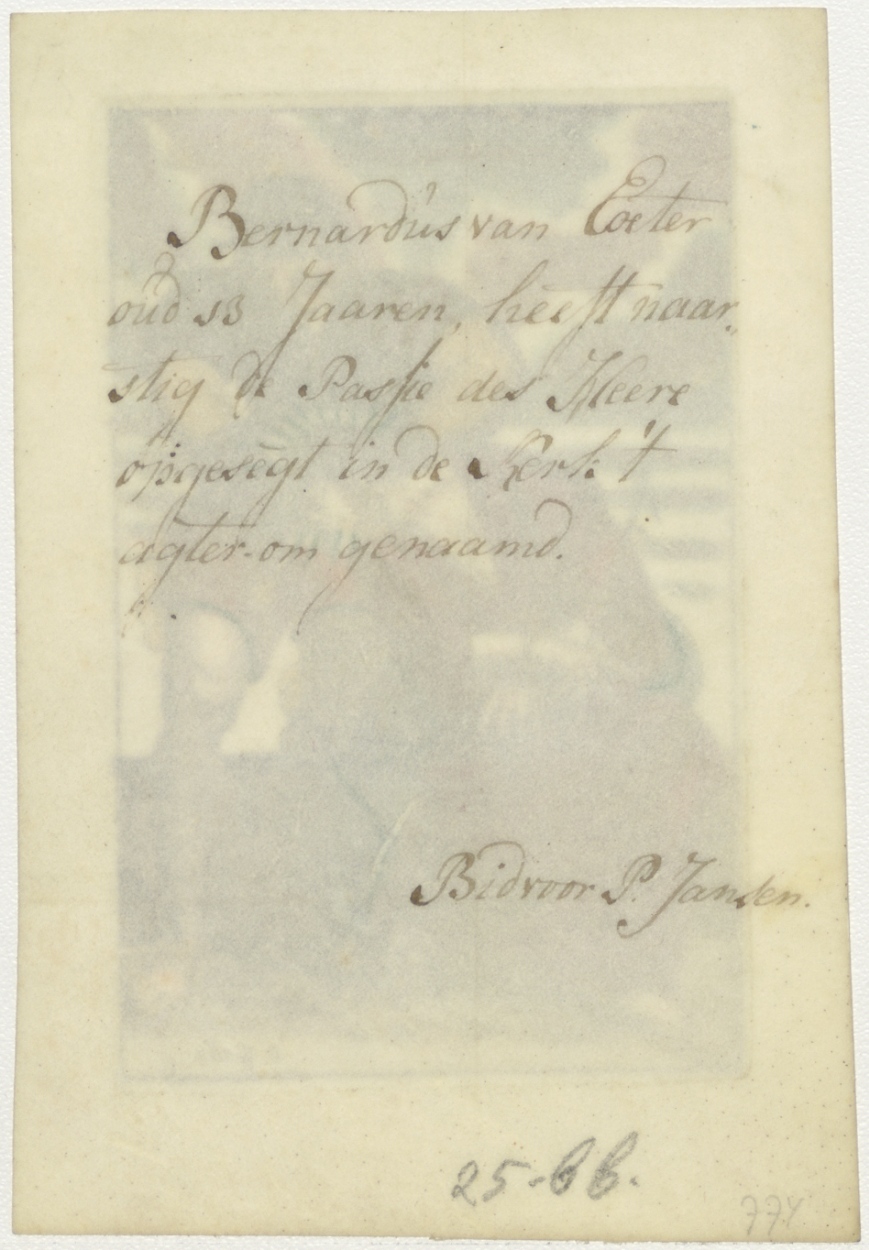 Bernardus van Coeter
oud 13 Jaaren, heeft naar„
stig de Passie des Heere
opgesegt in de Kerk 't
agter-om genaamd.
Bid voor P. Jansen.
25-bb.
774